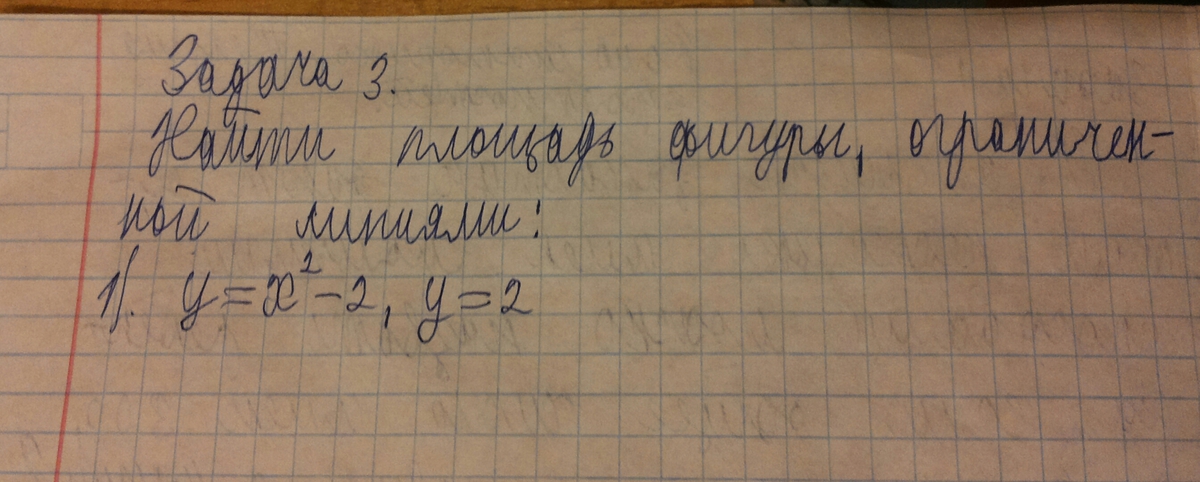 Задача 3.
Найти площадь фигуры, ограничен-
ной линиями:
1). y=x²-2, y=2